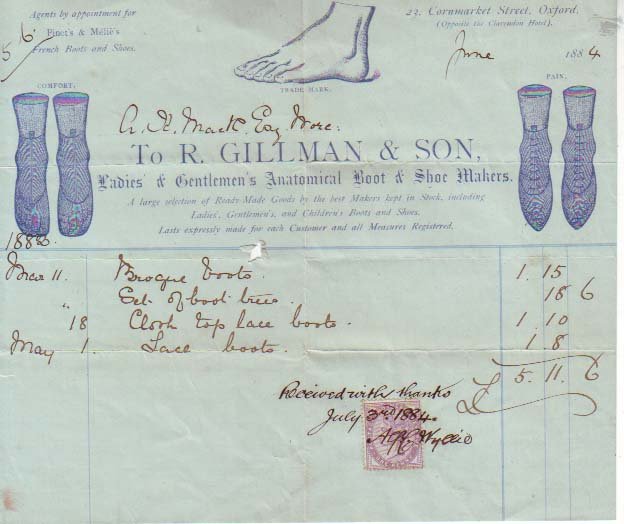 Agents by appointment for
Pinet's & Méliè's
French Boots and Shoes.
23, Cornmarket Street, Oxford.
(Opposite the Clarendon Hotel).
5/6.
June 1884
COMFORT.
TRADE MARK.
PAIN.
Esq
To R. GILLMAN & SON,
Ladies' & Gentlemen's Anatomical Boot & Shoe Makers.
A large selection of Ready-Made Goods by the best Makers kept in Stock, including
Ladies', Gentlemen's, and Children's Boots and Shoes.
Lasts expressly made for each Customer and all Measures Registered.
Mar 11. Brogue boots. 1. 15
Set of boot trees. 18 6
" 18 Cloth top lace boots. 1. 10
May 1. Lace boots. 1. 8
£ 5. 11. 6
Received with thanks
July 3rd 1884.